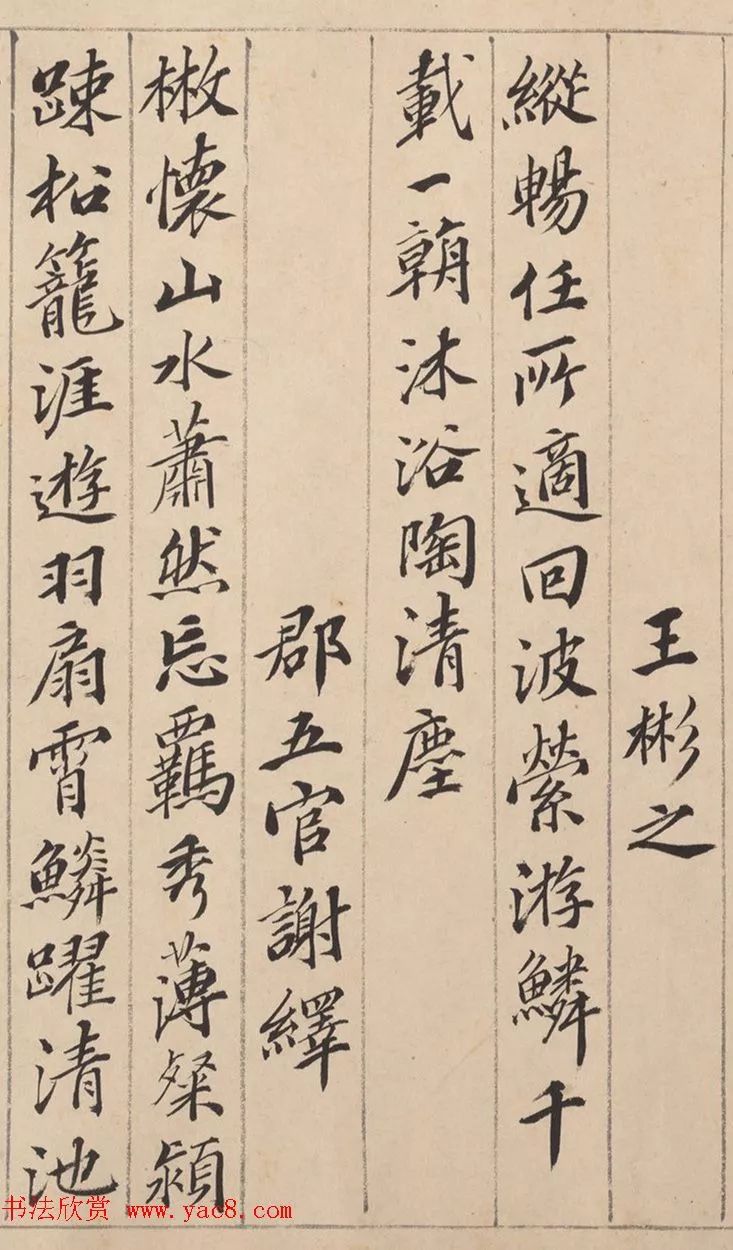 王彬之
縱暢任所適回波縈游鱗千
載一朝沐浴陶清塵
郡五官謝繹
散懷山水蕭然忘羈秀薄粲潁
踈松籠涯遊羽扇霄鱗躍清池
书法欣赏 www.yac8.com